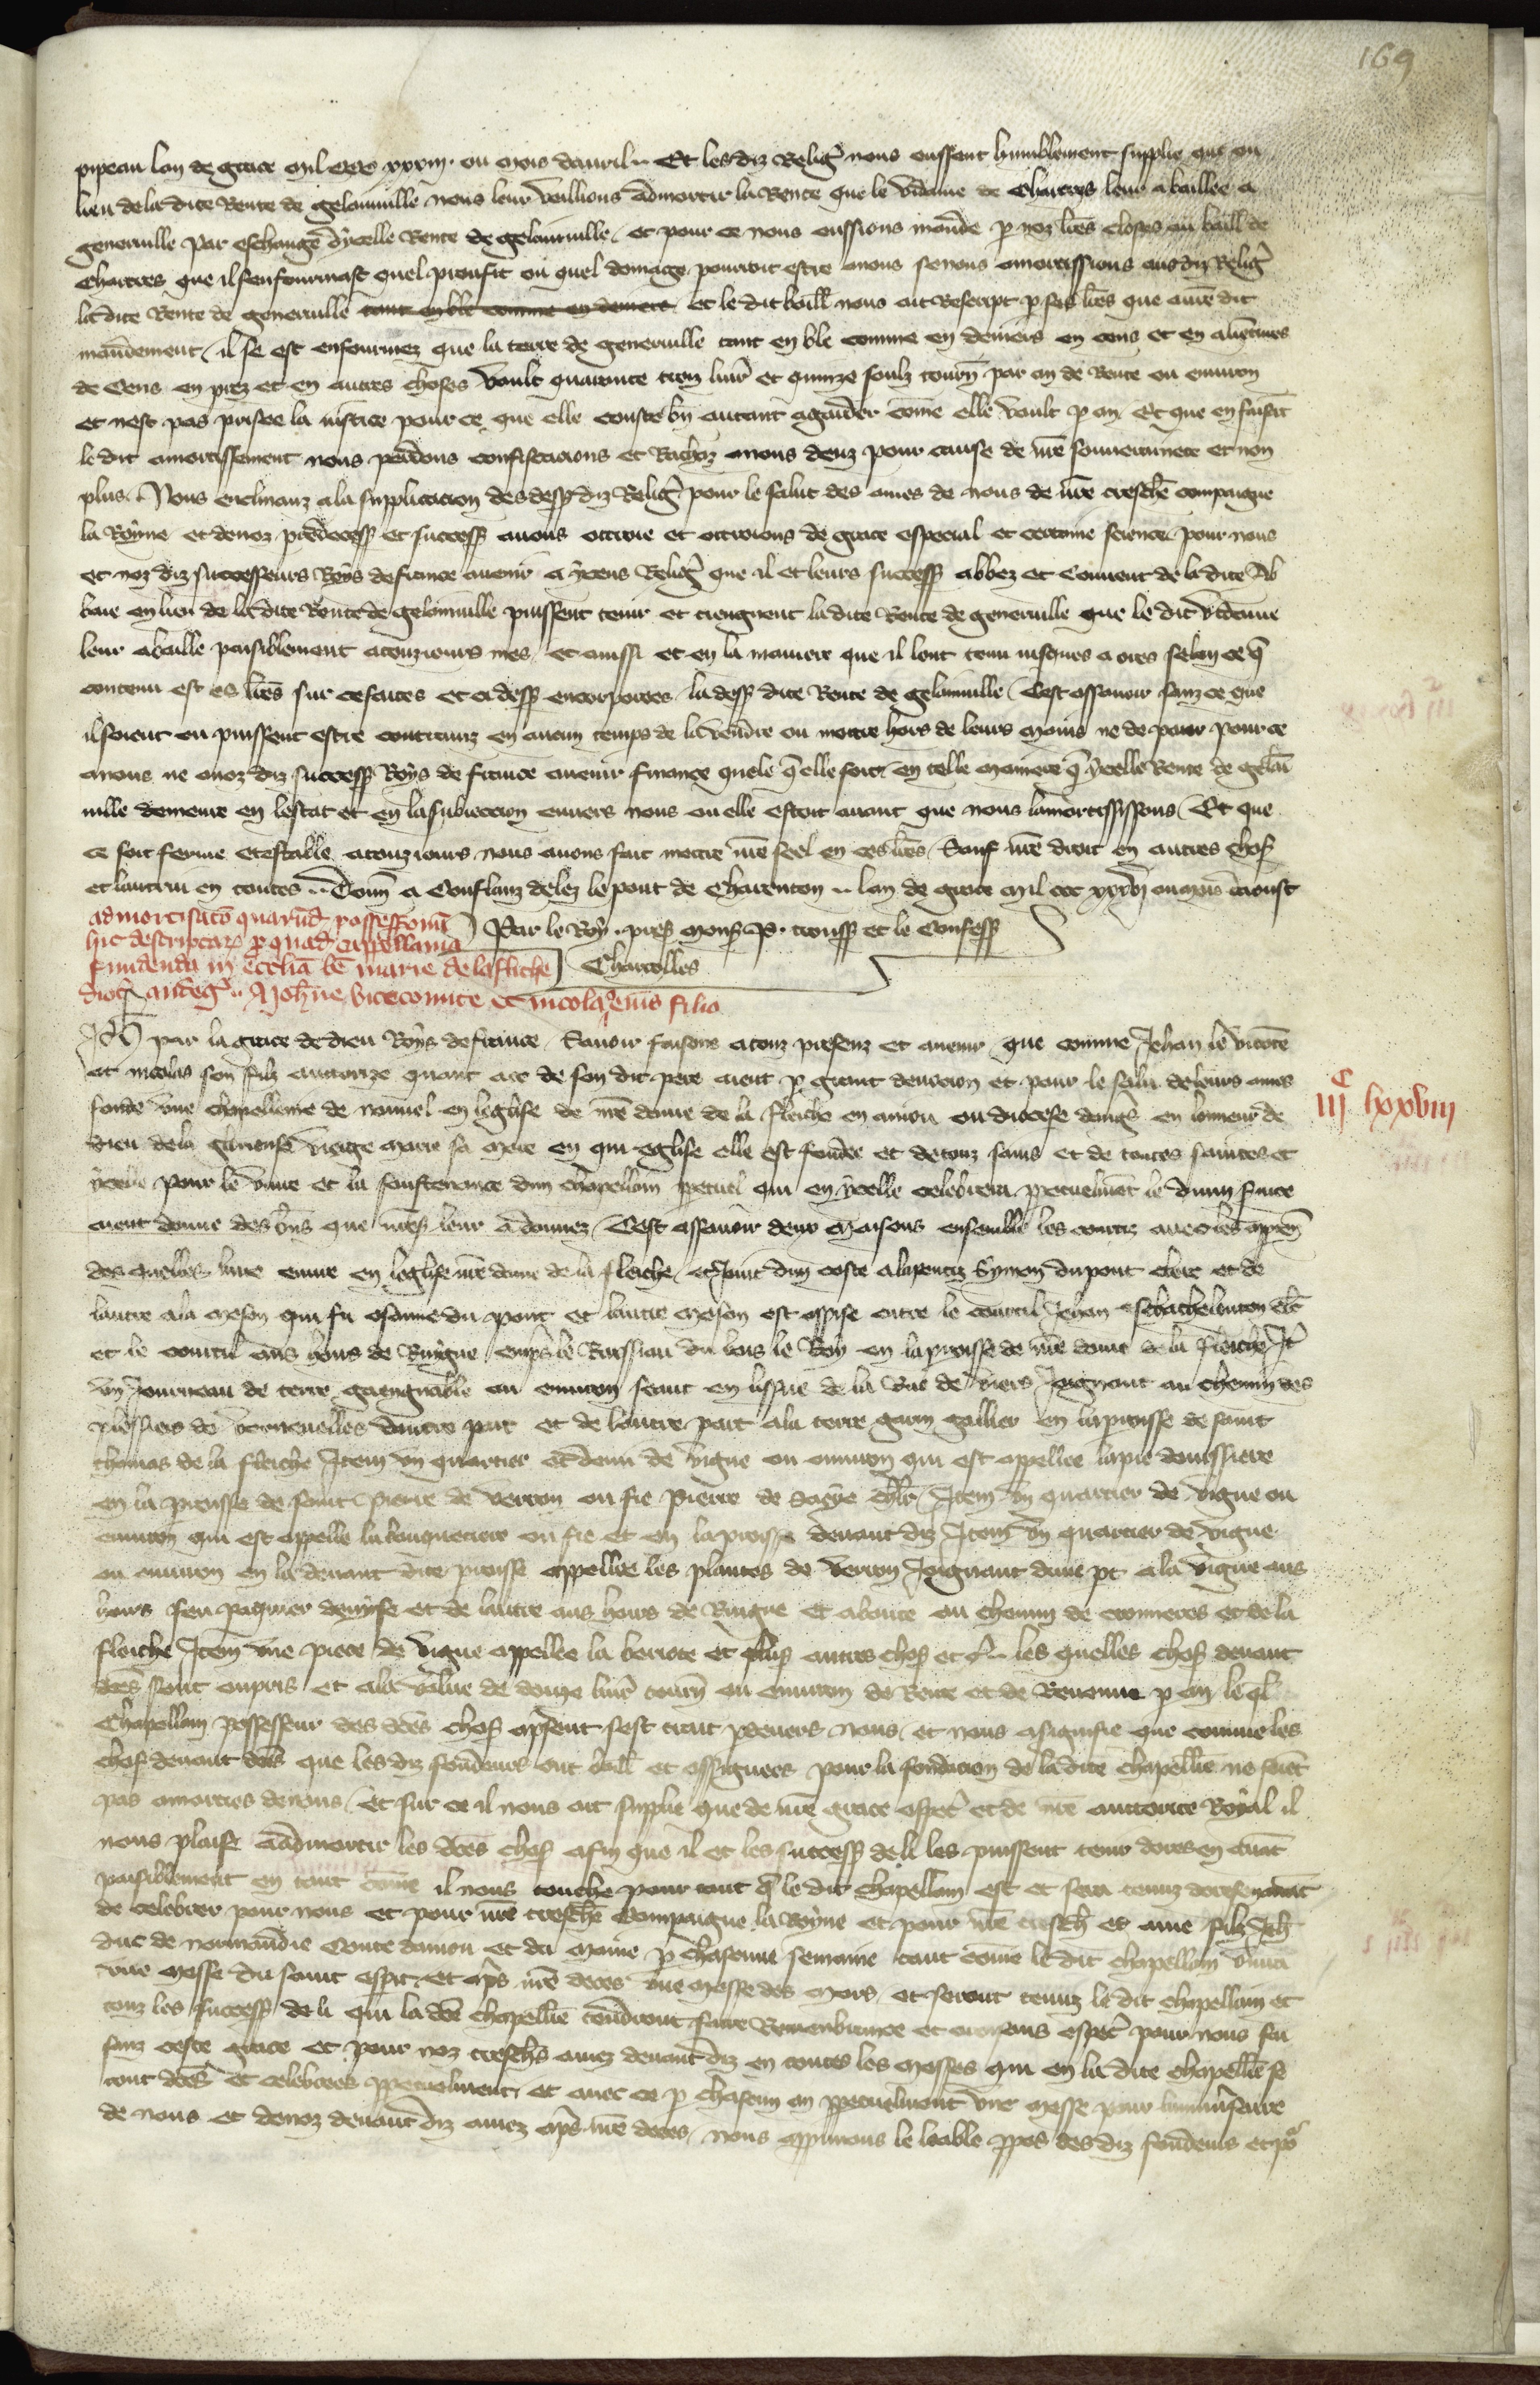 169
pipeau lan de grace mil ccc xxxiii. ou mois davril. Et les diz Religˀ nous eussent humblement supplie que ou
lieu de la dite Rente de gelainville nous leur veillions admortir la Rente que le vidame de Chartres leur a baillee a
generville par eschange dycelle Rente de gelainville, et pour ce nous eussions mande p noz lres closes au baill de
Chartres que il senfourmast quel proufit ou quel domage pourroit estre a nous se nous amortissions aus diz Religˀ
la dite Rente de generville tant en ble comme en deniers et le dit baill nous ait Rescript p ses lres que a nre dit
mandement, il se est enfourmez que la terre de generville tant en ble comme en deniers en cens et en aventures
de Cens en prez et en autres choses vault quarante trois livr et quinze soulz tourn par an de Rente ou environ
et nest pas prisee la justice pour ce que elle couste bn autant a garder come elle vault p an. Et que en faisant
le dit amortissement nous perdons confiscacions et Rachaz a nous deuz pour cause de nre souverainete et non
plus. Nous enclinanz a la supplicacion des dessus diz Religˀ pour le salut des ames de nous de nre treschere compaigne
la Royne et de noz predecess et success avons ottroie et ottroions de grace especial et certaine science, pour nous
et noz diz successeurs Roys de france avenir a yceus Religˀ que il et leurs success abbez et Couvent de la dite Ab
baie en lieu de la dite Rente de gelainville puissent tenir et tiengnent la dite Rente de generville que le dit vidame
leur a baille paisiblement a touzjours mes, et aussi et en la maniere que il lont tenu jusques a ores selon ce q
contenu est es lres sur ce faites et ci dess encorporees la dess dite Rente de gelainville, Cest assavoir sanz ce que
il soient ou puissent estre contrainz en aucun temps de la vendre ou mettre hors de leurs mains ne de paier pour ce
a nous ne a noz diz success Roys de france avenir finance quele q elle soit, en telle maniere q ycelle Rente de gelain
ville demeure en lestat et en la subjeccion envers nous ou elle estoit avant que nous lamortississons, Et que
ce soit ferme et estable a touzjours nous avons fait mettre nre seel en ces lres, Sauf nre droit en autres chos
et lautrui en toutes. Donn a Conflanz delez le pont de Charenton. lan de grace mil ccc xxxvi ou mois daoust
admortisato quarund possessionu
hic descriptar p quad cappellania
fundenda in ecclia be marie de la fliche
dioc andegˀ. A Johne vicecomite et nicola eius filio
Par le Roy. pres mons P. trouss et le Confess
Charrolles
Ph par la grace de dieu Roys de france, Savoir faisons a touz presenz et avenir que comme Jehan le viconte
et nicolas son filz auctorize quant a ce de son dit pere aient p grant devocion et pour le salu de leurs ames
fonde une chapellenie de nouvel en leglise de nre dame de la fleiche en anjou ou diocese dangˀ en lonneur de
dieu de la glorieuse vierge marie sa mere en qui eglise elle est fondee et de touz sains et de toutes saintes et
ycelle pour le vivre et la soustenance dun chapellain ppetuel qui en ycelle celebrera ppetuelmat le divin service
aient donne des bns que nres leur a donnez, Cest assavoir deux maisons ensemble les courtiz avec les appten
des quelles lune
leglise nre dame de la fleiche, et joint dun coste a lapentiz Symon du pont clerc et de
lautre a la meson qui fu osanne du pont et lautre meson est assise entre le courtil Jehan
et le courtil aus hoirs de Ringue emps le Russiau du bois le Roy en la proisse de nre dame de la fleiche It
un journeau de terre gaengnable ou environ seant en lissue de la Rue de
joignant au chemin des
dautre part et de lautre part a la terre garin gallier en la proisse de saint
thomas de la fleiche Item un quartier et demi de vigne ou environ qui est appellee lapie
en la proisse de saint Pierre de verron ou fie Pierre de
chlr, Item un quartier de vigne ou
environ qui est appelle la
ou fie et en la proisse devant diz Item un quartier de vigne
ou environ en la devant dite proisse appellee les plantes de verron joignant dune pt a la vigne aus
hoirs feu
et de lautre aus hoirs de Ringue et aboute ou chemin de
et de la
fleiche Item une piece de vigne appellee la
et plus autres chos et c. les quelles chos devant
dces sont en pris et a la value de douze livr tourn ou environ de Rente et de Revenue p an, le ql
Chapellain possesseur des dces chos apsent sest trait pdevers nous, et nous a signifie que comme les
chos devant dces que les diz fondeurs ont baill et assignees pour la fondacion de la dite chapellie ne soient
pas amorties de nous, Et sur ce il nous ait supplie que de nre grace especˀ et de nre auctorite Royal il
nous plaise a admortir les dces chos afin que il et les success de li les puissent tenir dores en avat
paisiblement en tant come il nous touche pour tant q le dit chapellain est et sera tenuz doresenavat
de celebrer pour nous et pour nre treschere Compaigne la Royne et pour nre trescher et ame filz Jeh
duc de normandie Conte danjou et du maine p chascune semaine tant come le dit chapellain vivra
une messe du saint espit et aps nre deces une messe des mors, et seront tenuz le dit chapellain et
touz les success de li qui la dce chapellie tendront faire Remenbrance et oroisons especˀ pour nous fai
sanz ceste grace et pour noz treschers amez devant diz en toutes les messes qui en la dite chapellie se
ront dces et celebrees ppetuelment, et avec ce p chascun an ppetuelment une messe pour lanniversaire
de nous et de noz devant diz amez aps nre deces, nous approvons le loable ppos des diz fondeurs et pour
iij c lxxviii